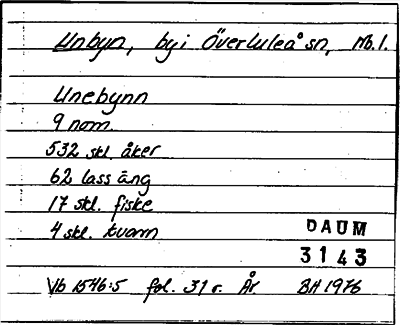 Unbyn, by i Överluleå sn, Nb.l.
Unebynn
9 nom.
532 skl. åker
62 lass äng
17 skl. fiske
4 skl. kvarn
DAUM
3143
Vb 1546:5 fol. 31 r. År BH 1976